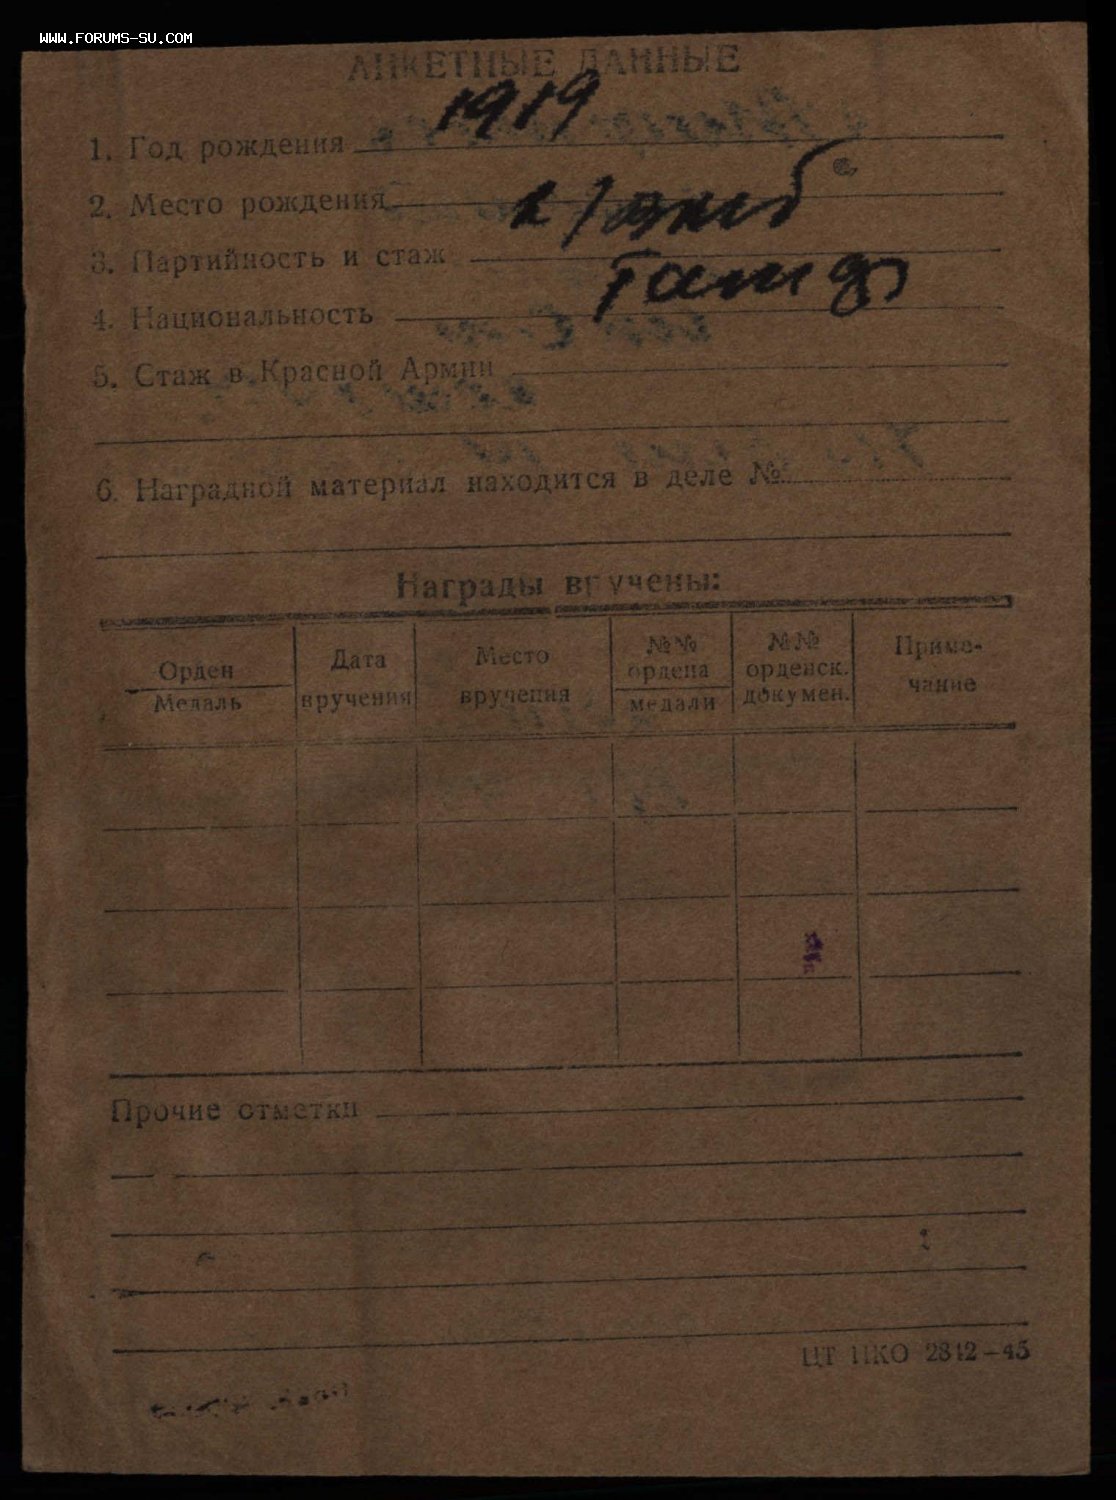 WWW.FORUMS-SU.COM
АНКЕТНЫЕ ДАННЫЕ
1. Год рождения 1919
2. Место рождения
3. Партийность и стаж
4. Национальность
5. Стаж в Красной Армии
6. Наградной материал находится в деле №
Награды вручены:
Орден
Медаль
Дата
вручения
Место
вручения
№№
ордена
медали
№№
орденск.
докумен.
Приме-
чание
Прочие отметки
ЦТ НКО 2812—45